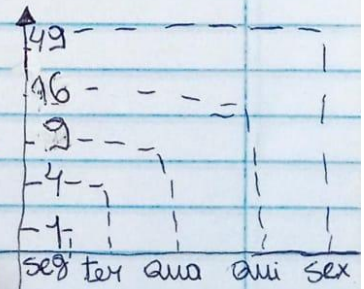 49
16
9
4
1
seg ter qua qui sex